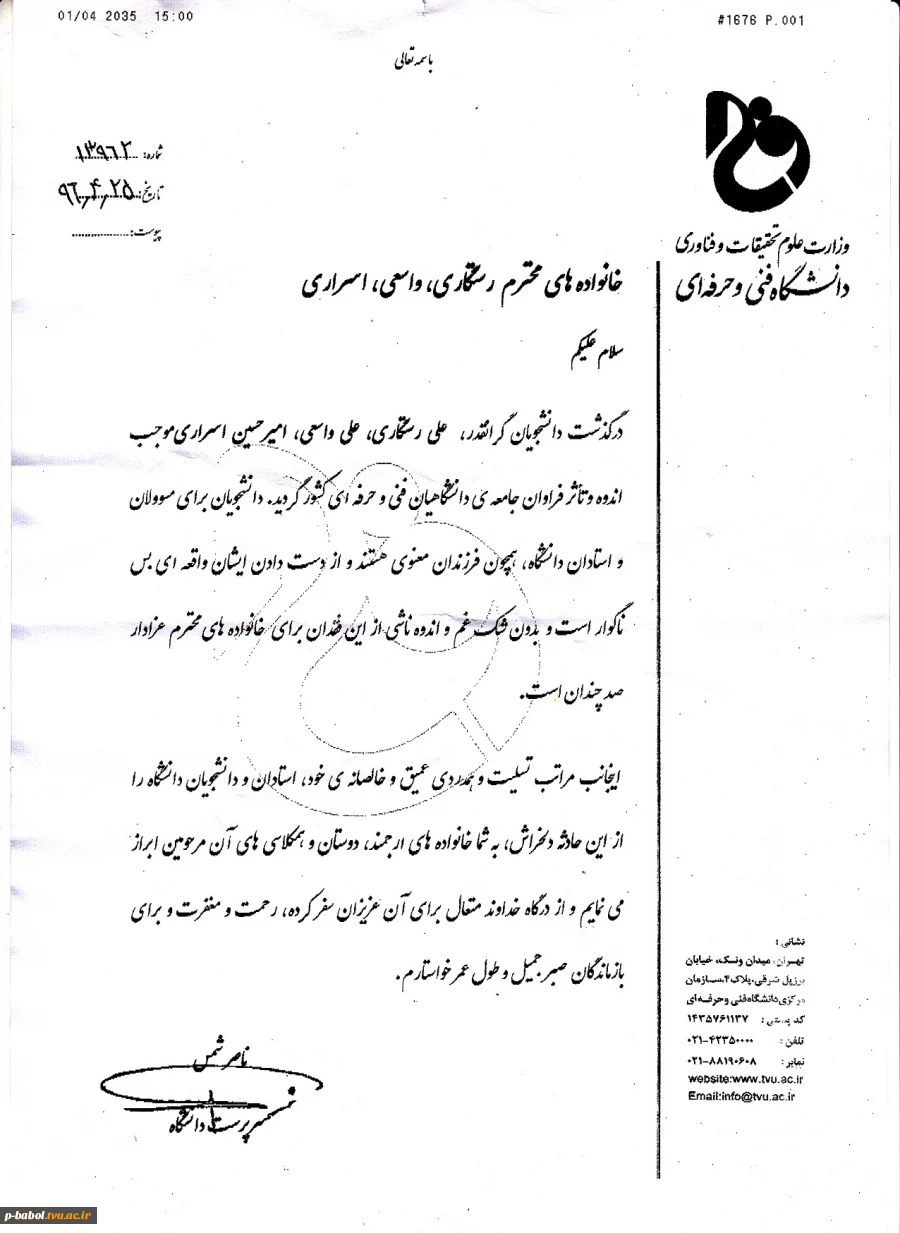 01/04 2035 15:00
#1676 P.001
باسمه تعالی
شماره: ۱۳۹۶۲
تاریخ: ۹۶,۴,۲۵
پیوست: ..................
وزارت علوم تحقیقات و فناوری
دانشگاه فنی و حرفه ای
خانواده های محترم رستگاری، واسعی، اسراری
سلام علیکم
درگذشت دانشجویان گرانقدر، علی رستگاری، علی واسعی، امیرحسین اسراری موجب
اندوه و تأثر فراوان جامعه ی دانشگاهیان فنی و حرفه ای کشور گردید. دانشجویان برای مسوولان
و استادان دانشگاه، همچون فرزندان معنوی هستند و از دست دادن ایشان واقعه ای بس
ناگوار است و بدون شک غم و اندوه ناشی از این فقدان برای خانواده های محترم عزادار
صد چندان است.
اینجانب مراتب تسلیت و همدردی عمیق و خالصانه ی خود، استادان و دانشجویان دانشگاه را
از این حادثه دلخراش، به شما خانواده های ارجمند، دوستان و همکلاسی های آن مرحومین ابراز
می نمایم و از درگاه خداوند متعال برای آن عزیزان سفر کرده، رحمت و مغفرت و برای
بازماندگان صبر جمیل و طول عمر خواستارم.
ناصر شمس
سرپرست دانشگاه
نشانی :
تهران، میدان ونک، خیابان
برزیل شرقی، پلاک۴، سازمان
مرکزی دانشگاه فنی و حرفه ای
کد پستی : ۱۴۳۵۷۶۱۱۳۷
تلفن : ۰۲۱-۴۲۳۵۰۰۰۰
نمابر : ۰۲۱-۸۸۱۹۰۶۰۸
website:www.tvu.ac.ir
Email:info@tvu.ac.ir
p-babol.tvu.ac.ir